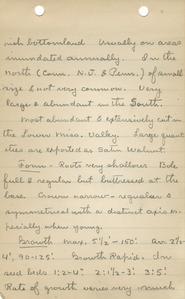 rich bottomland. Usually on areas
inundated annually. In the
North (Conn. N.J. & Penns.) of small
size & not very common. Very
large & abundant in the South.
Most abundant & extensively cut in
the Lower Miss. Valley. Large quant
ities are exported as Satin Walnut.
Form - Roots very shallow. Bole
full & regular but buttressed at the
base. Crown narrow - regular &
symmetrical with a distinct axis es-
pecially when young.
Growth max. 5½' - 150'. Av. 2½-
4', 90-125'. Growth Rapid. In
seed beds. 1:2-4". 2:1½-3' 3:5'
Rate of growth varies very much